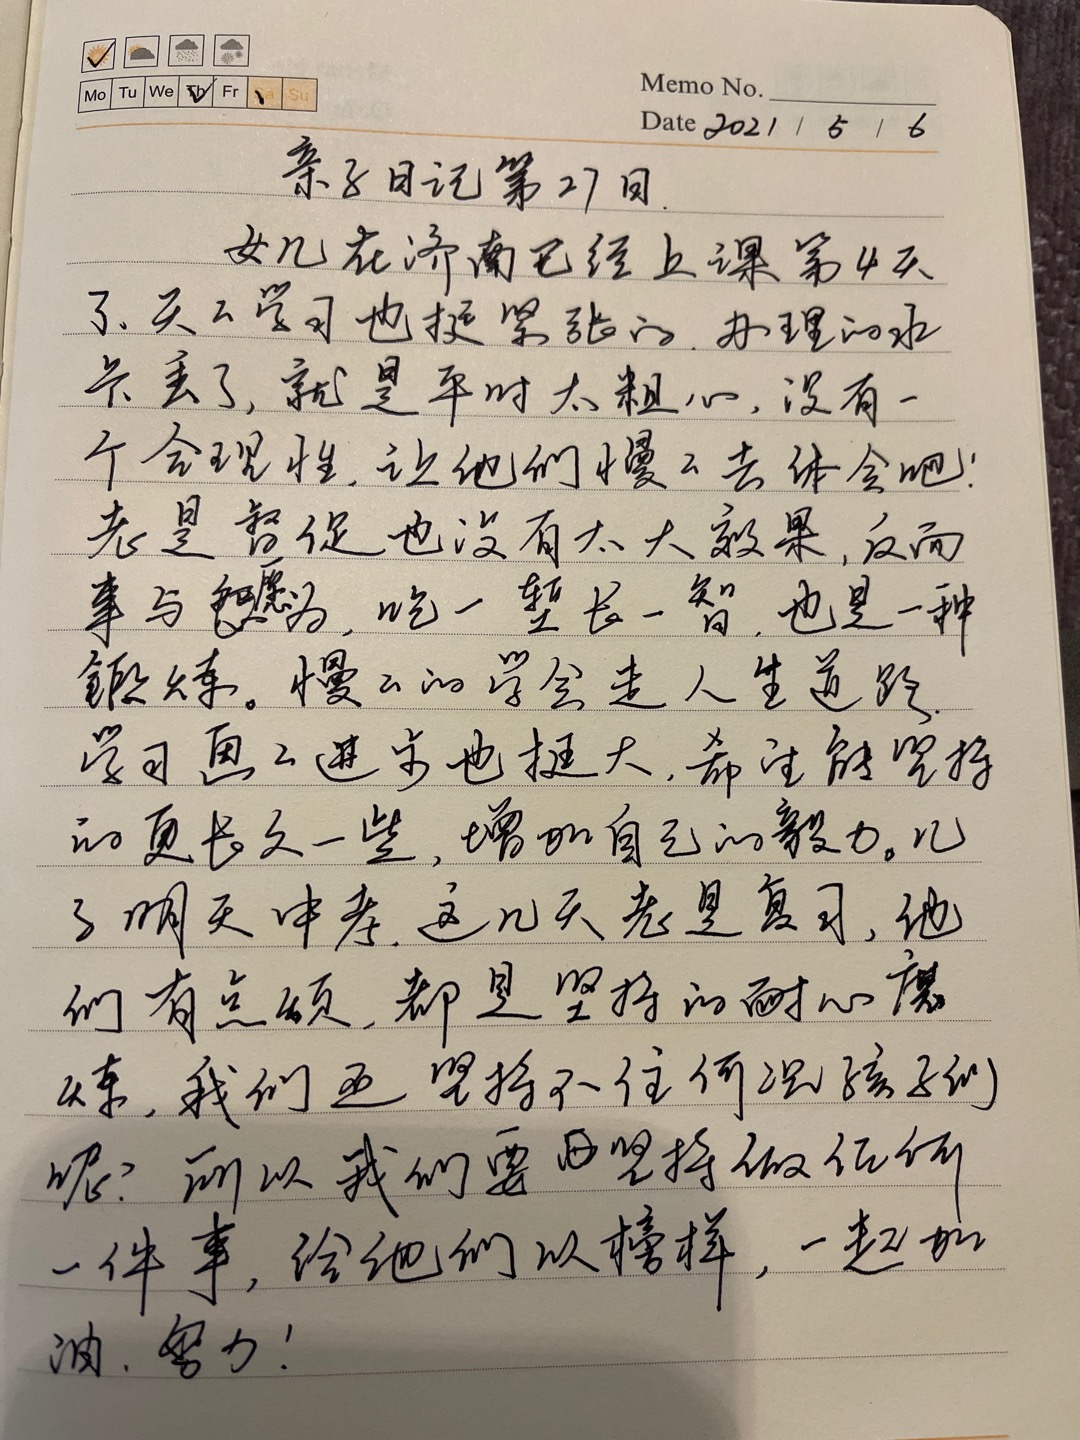 Mo Tu We Th Fr Sa Su
Memo No.
Date 2021 / 5 / 6
亲子日记第27日.
女儿在济南已经上课第4天
了、天々学习也挺紧张的.办理的水
卡丢了,就是平时太粗心,没有一
个合理性.让他们慢々去体会吧!
老是督促也没有太大效果,反而
事与愿为,吃一堑长一智,也是一种
锻炼。慢々的学会走人生道路.
学习画々进步也挺大.希望能坚持
的更长久一些,增加自己的毅力。儿
子明天中考.这几天老是复习,他
们有点烦,都是坚持的耐心磨
炼,我们还坚持不住何况孩子们
呢?所以我们要 坚持做任何
一件事,给他们以榜样,一起加
油.努力!